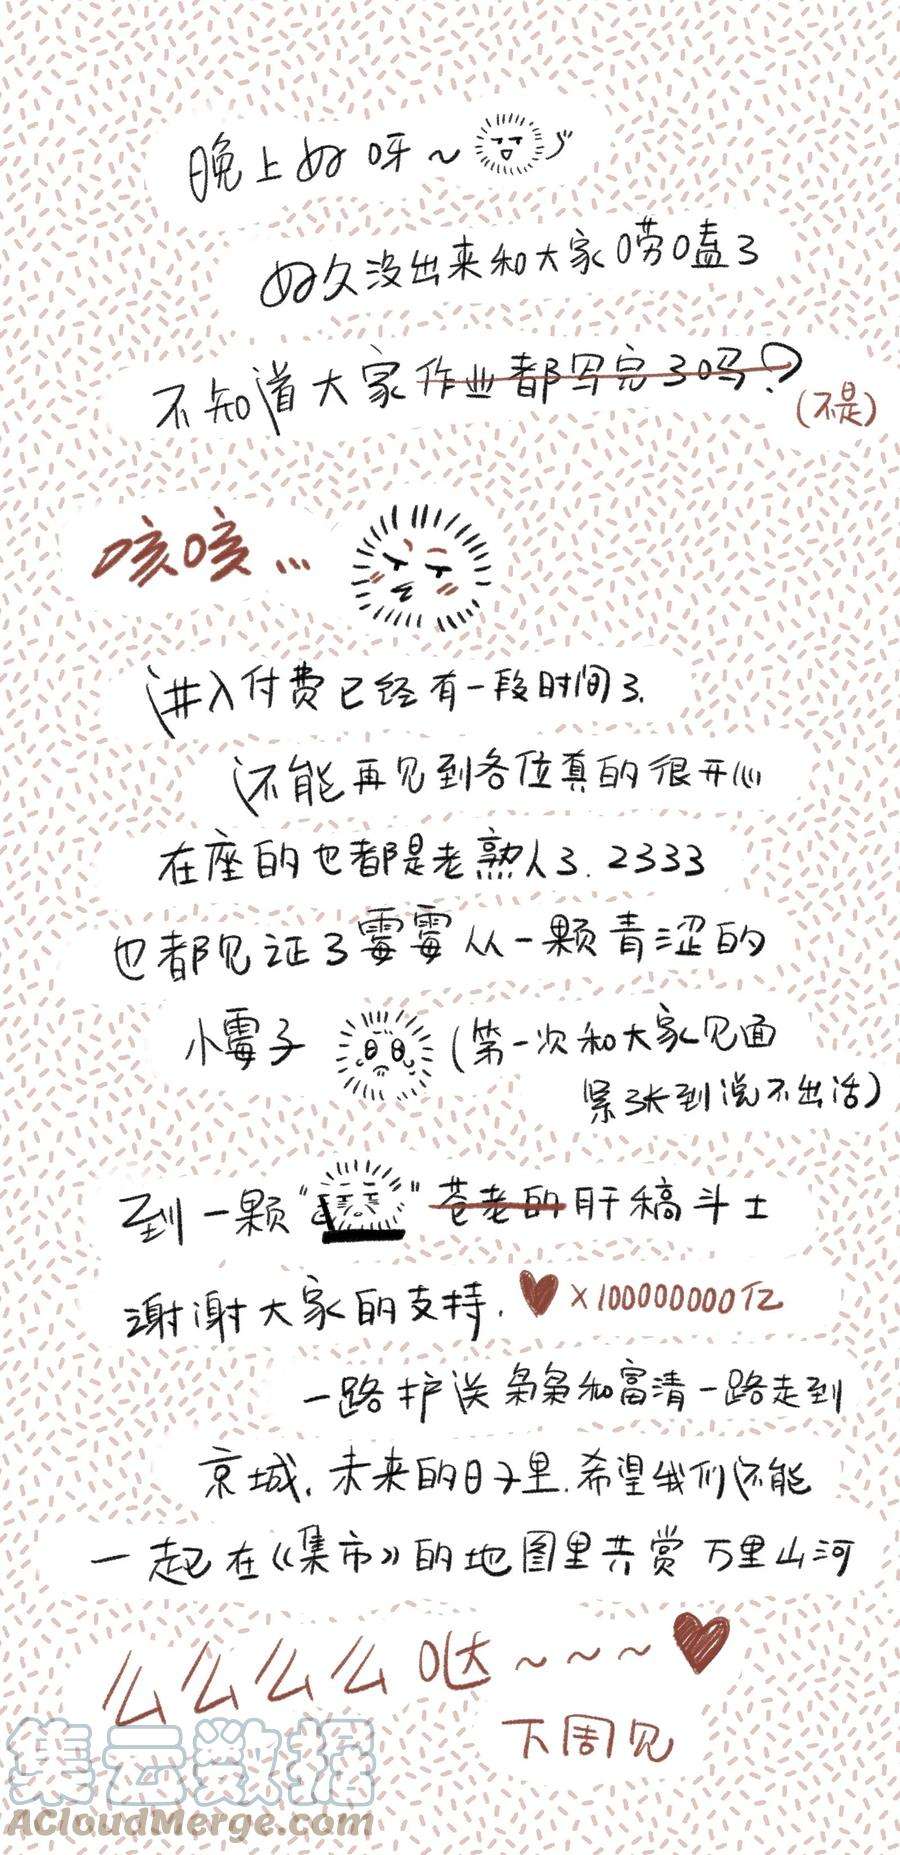 晚上好呀~
好久没出来和大家唠嗑了
不知道大家作业都写完了吗?
(不是)
咳咳...
进入付费已经有一段时间了.
还能再见到各位真的很开心
在座的也都是老熟人了.2333
也都见证了霉霉从一颗青涩的
小霉子(第一次和大家见面
紧张到说不出话)
到一颗“”苍老的肝稿斗士
谢谢大家的支持.×100000000亿
一路护送枭枭和富清一路走到
京城.未来的日子里.希望我们还能
一起在《集市》的地图里共赏万里山河
么么么么哒~~~
下周见
集云数据
ACloudMerge.com